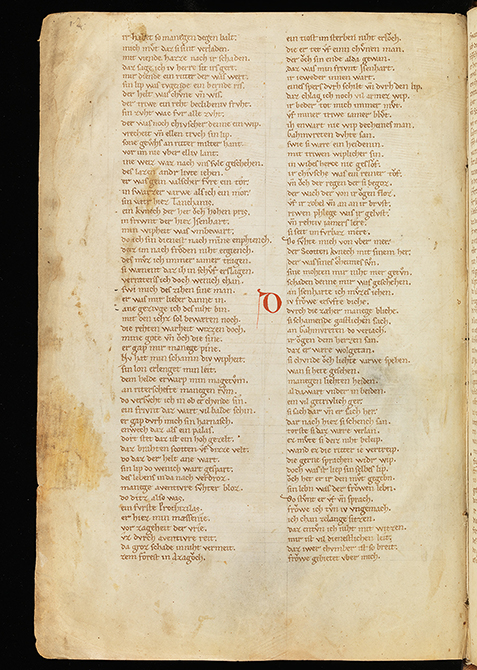 ir habet so manegen degen balt:
mich mvt daz si sint verladen
mit viende hazze nach ir schaden.
daz sage ich iv herre sit irs gert:
mir diende ein riter der was wert:
sin lip was tvgende ein bernde ris.
der helt was chvne vn̄ wis.
der triwe ein reht beclibeniv frvht.
sin zvht was fvr alle zvht:
der was noch chvscher denne ein wip.
vrecheit vn̄ ellen trvch sin lip.
sone gewͦhs an riter milter hant:
vor im nie vber elliv lant:
ine weiz waz nach vns svle geschehen.
des lazen andr livte iehen.
er was gein valscher fvre ein tor:
in swarzer varwe als ich ein mor:
sin vater hiez Tanchanis.
ein kvnech der het och hohen pris.
min frivnt der hiez Isenhart.
min wipheit was vmbewart:
do ich sin dienest nach minne enphiench.
daz im nach frovden niht ergiench.
des mvz ich immer iamer tragen.
si wænent daz ich in schvf erslagen
verratens ich doch wenich chan.
swi mich des zihen sine man.
er was mir lieber danne in.
ane gezivge ich des niht bin.
mit den ichz sol beweren noch.
die rehten warheit wizzen doch.
mine gote vn̄ och die sine.
er gap mir manege pine.
Nv hat min schamnde wipheit:
sin lon erlenget min leit.
dem helde erwarp min magetvm.
an riterschefte manegen rvm.
do versvcht ich in ob er chvnde sin.
ein frivnt daz wart vil balde schin:
er gap dvrh mich sin harnasch.
enwech daz als ein palas.
dort stet daz ist ein hoh gezelt:
daz brahten scotten vf ditze velt:
do daz der helt ane wart.
sin lip do wenich wart gespart:
des lebens in da nach verdroz.
manege aventivre svhter bloz.
do ditz also was.
ein fvrste Prothyzilas.
er hiez min massenie.
vor zageheit der vrie.
vz dvrch aventivre reit:
da groz schade in niht vermeit.
zem forest in Azagoch.
ein tiost im sterben niht erloch.
die er tet vf einn chvnen man.
der och sin ende alda gewan.
daz was min frivnt Isenhart.
ir iewederr innen wart.
eines spers dvrh schilt vn̄ dvrh den lip.
daz chlag ich noch vil armez wip.
ir beder tot mich immer mvet.
vf miner triwe iamer blvet.
ih enwart nie wip decheines man.
Gahmvreten dvhte san.
swie si wære ein heidenin.
mit triwen wiplicher sin.
in wibes herze nie geslof.
ir chvsche was ein reiner tof.
vn̄ och der regen der si begoz.
der wach der von ir ogen floz.
vf ir zobel vn̄ an ir brvst.
riwen phlege was ir gelvst.
vn̄ rehtiv iamers lere.
si seit im fvrbaz mere.
Do svhte mich von vber mer.
der Scotten kvnech mit sinem her.
der was sines oheimes svn.
sine mohten mir niht mer getvn.
schaden denne mir was geschehen.
an Isenharte ich mvz es iehen.
Div frowe ersvfte diche.
dvrch die zæher manege bliche.
si schamende gastlichen sach.
an Gahmvreten do veriach.
ir ogen dem herzen san.
daz er wære wolgetan.
si chvnde och liehte varwe spehen.
wan si hete gesehen.
manegen liehten heiden.
alda wart vnder in beiden.
ein vil getrivlich ger.
si sach dar vn̄ er sach her.
dar nach hiez si schench san.
torste si daz wære verlan.
er mvte si deiz niht beleip.
wand er die ritter ie vertreip.
die gerne sprachen wider wip.
doch was ir lip sin selbes lip.
och het er ir den mvt gegebn.
sin lebn was der frowen lebn.
Do stvnt er vf vn̄ sprach.
frowe ich tvn iv vngemach.
ich chan zelange sitzen.
daz entvn ich niht mit witzen.
mir ist vil dienestlichen leit:
daz iwer chvmber ist so breit:
frowe gebietet vber mich.